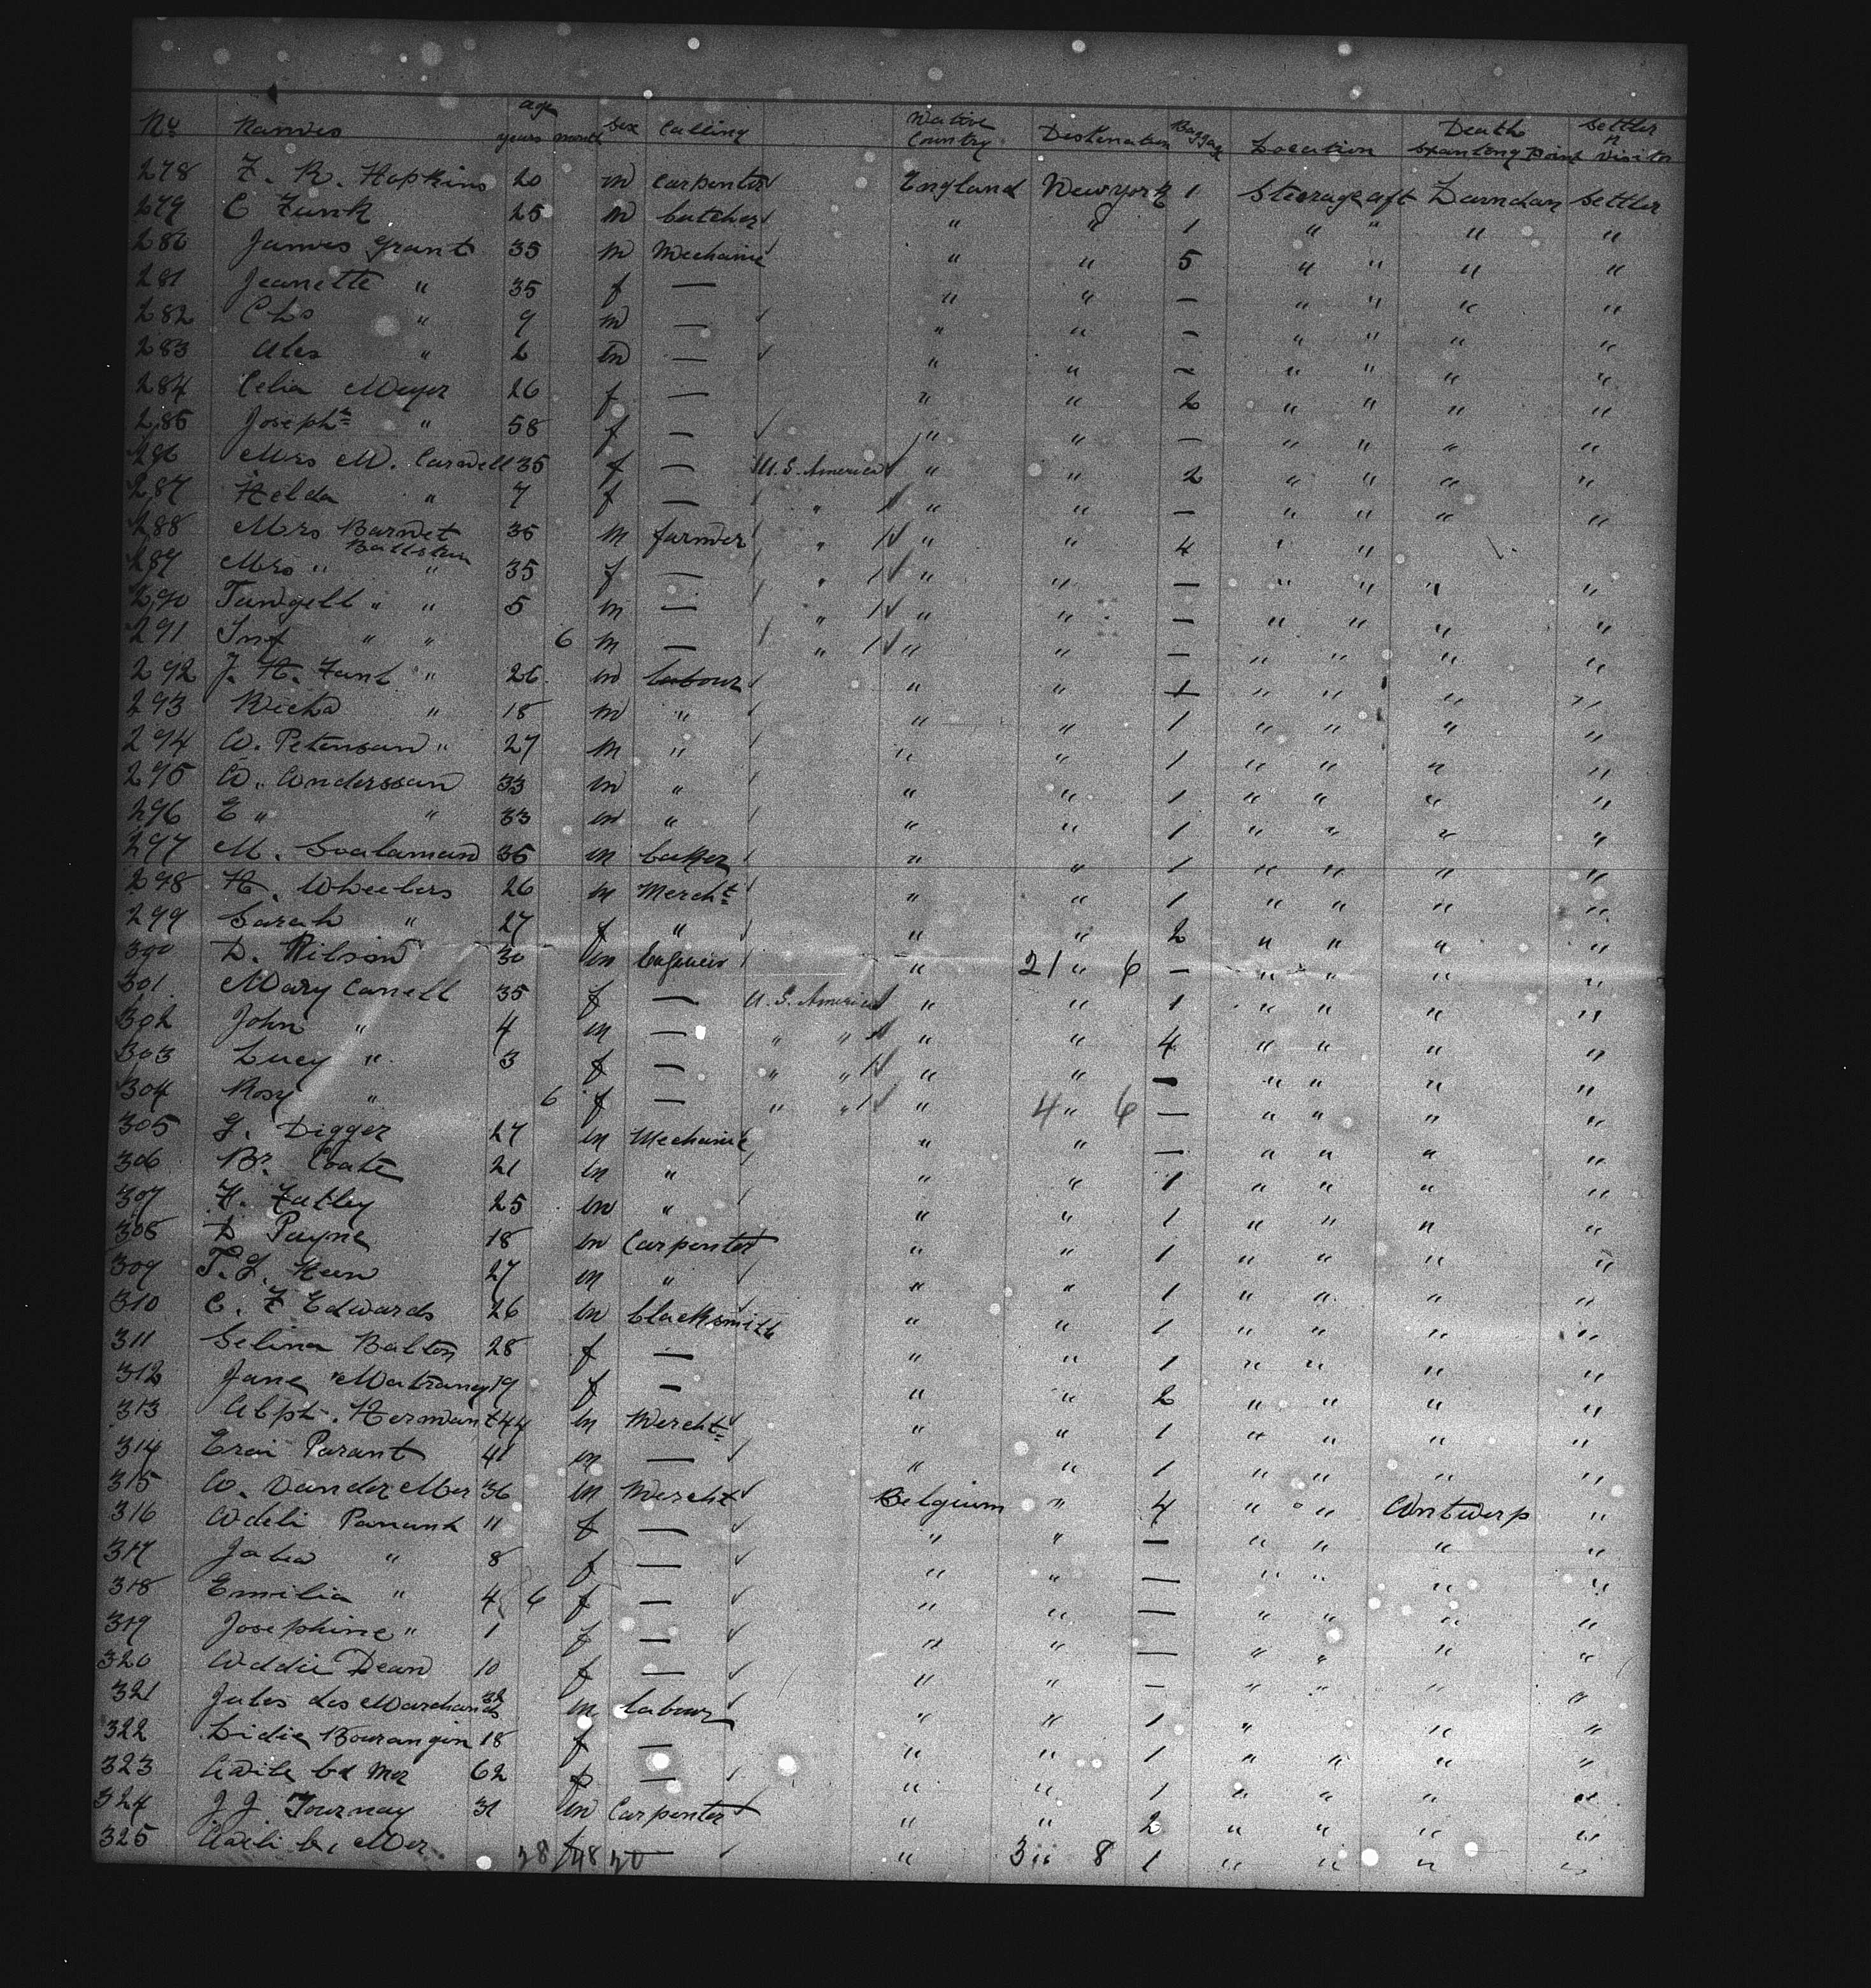 No Names age years month Sex Calling Native Country Destination Baggage Location Death Starting Point Settler or Visitor
278 F. R. Hopkins 20 m Carpenter England New York 1 Steerage aft Settler
279 C Funk 25 m butcher " " 1 " " " "
280 James Grant 35 m Mechanic " " 5 " " " "
281 Jeanette " 35 f — " " — " " " "
282 Chs " 9 m — " " — " " " "
283 Alex " 2 m — " " — " " " "
284 Celia Meyer 26 f — " " 2 " " " "
285 Joseph " 58 f — " " — " " " "
286 Mrs M. Carwell 35 f — U.S. America " " 2 " " " "
287 Helda " 7 f — " " " — " " " "
288 Mrs Barnet 35 m farmer " " " 4 " "
289 Mrs " " 35 f — " " " — " " " "
290 " " 5 m — " " " — " " " "
291 Inf " " 6 m — " " " — " " " "
292 J. H. " 26 m labour " " 1 " " " "
293 Richd " 18 m " " " 1 " " " "
294 W. Peterson " 27 m " " " 1 " " " "
295 A. Andersson 33 m " " " 1 " " " "
296 E " " 33 m " " " 1 " " " "
297 M. Soalaman 35 m baker " " 1 " " " "
298 H. Wheelers 26 m Mercht " " 1 " " " "
299 Sarah " 27 f " " " 2 " " " "
300 D. Wilson 30 m Engineer " 21 " 6 — " " " "
301 Mary Carrell 35 f — U.S. America " " 1 " " " "
302 John " 4 m — " " " " 4 " " " "
303 Lucy " 3 f — " " " " — " " " "
304 Rosy " 6 f — " " " 4 " 6 — " " " "
305 G. Digger 27 m Mechanic " " — " " " "
306 Coate 21 m " " " 1 " " " "
307 H. Fatley 25 m " " " 1 " " " "
308 D Payne 18 m Carpenter " " 1 " " " "
309 T. G. Keen 27 m " " " 1 " " " "
310 C. F Edwards 26 m blacksmith " " 1 " " " "
311 Selina Balton 28 f — " " 1 " " " "
312 Jane 19 f — " " 2 " " " "
313 Alph. Hermant 44 m Mercht " " 1 " " " "
314 Parant 41 m — " " 1 " " " "
315 Vander Mer 36 m Mercht Belgium " 4 " " Antwerp "
316 Adeli Parant 11 f — " " — " " " "
317 " 8 f — " " — " " " "
318 Emilia " 4 6 f — " " — " " " "
319 Josephine " 1 f — " " — " " " "
320 Addie Dean 10 f — " " — " " " "
321 Jules des Marchands 32 m labour " " 1 " " "
322 Lidie Bourangin 18 f — " " 1 " " " "
323 62 f — " " 1 " " " "
324 J J Tournay 31 m Carpenter " " 2 " " " "
325 f — " 3 " 8 1 " " " "